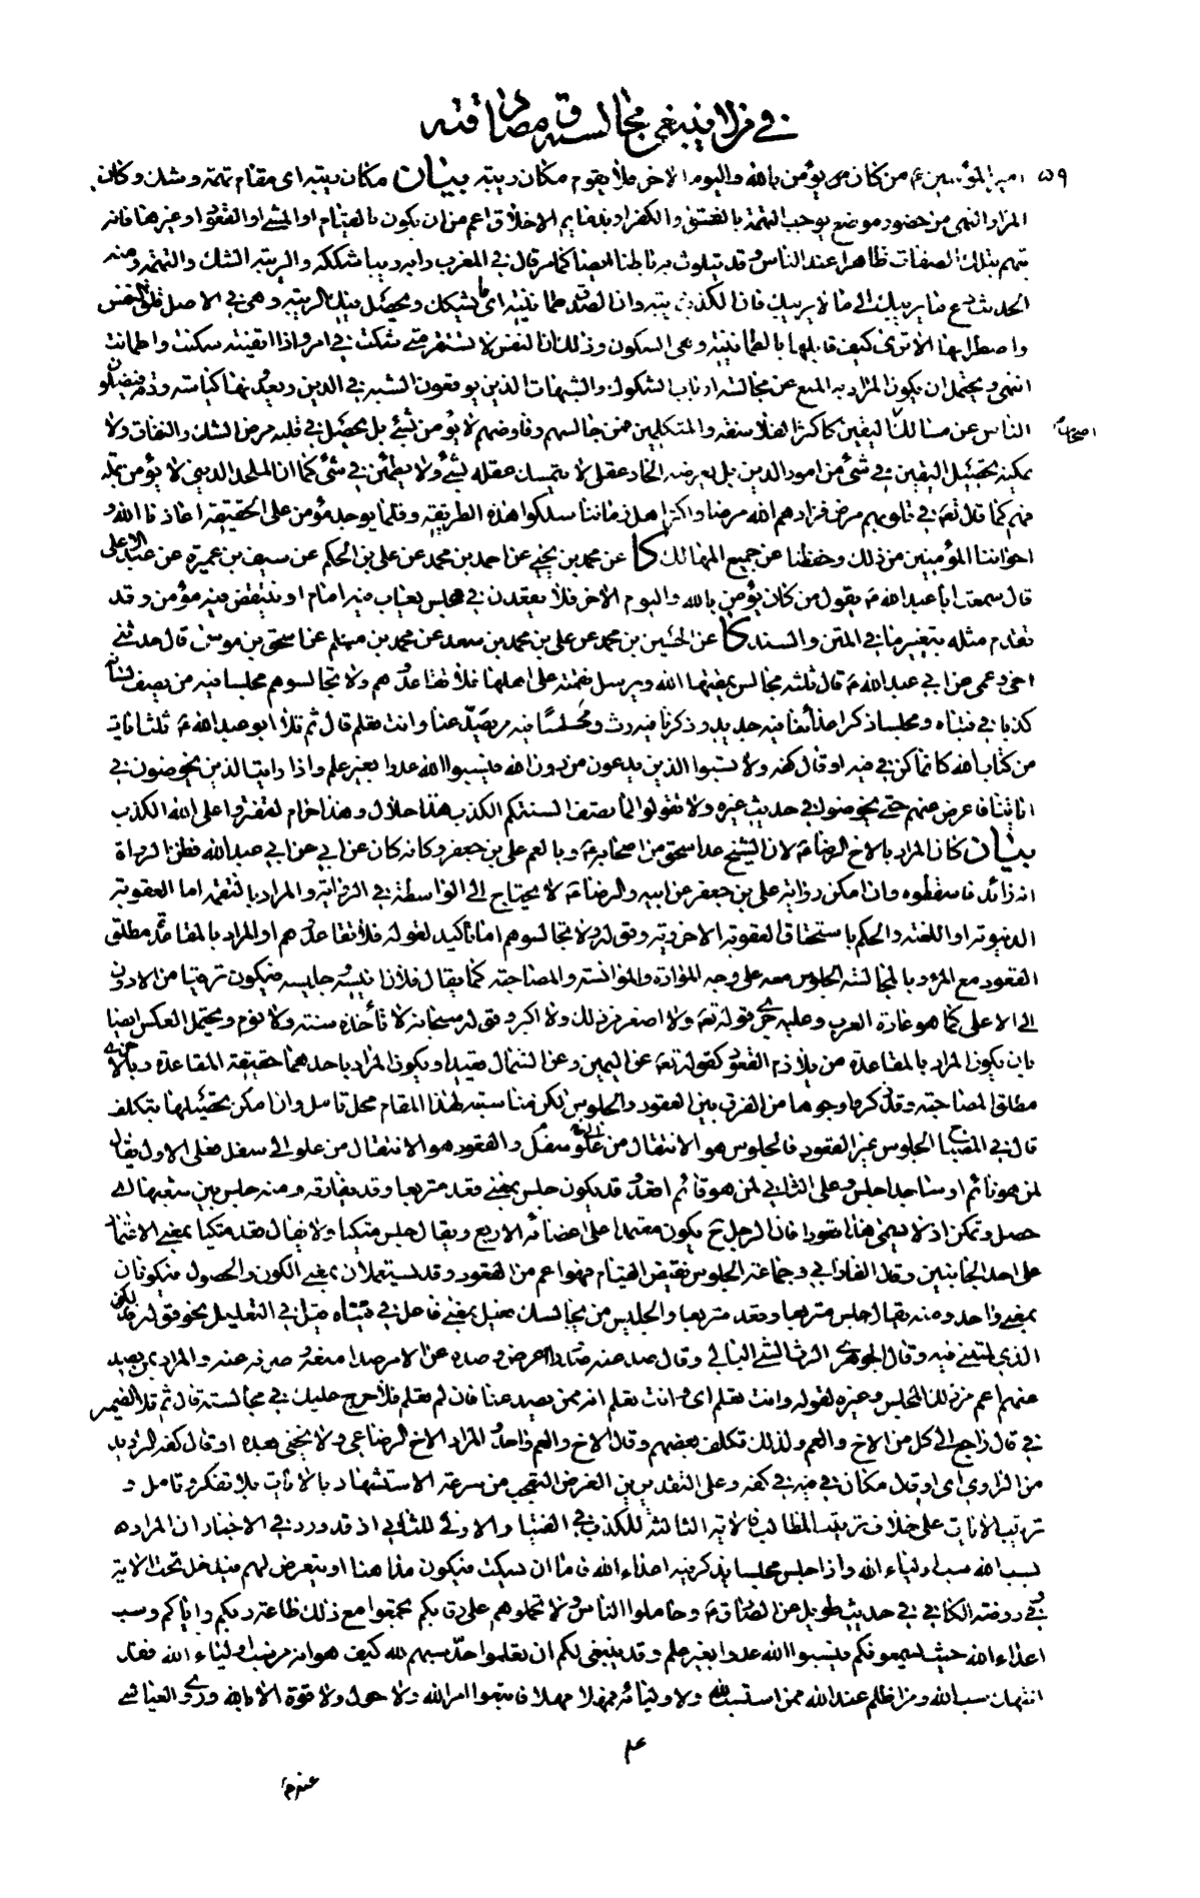 في من لا ينبغي مجالسته ومصادقته
٥٩ امير المؤمنين ع من كان يؤمن بالله واليوم الاخر فلا يقوم مكان ريبة بيان مكان ريبة اى مقام تهمة وشك وكان
المراد النهى عن حضور موضع يوجب التهمة بالفسق والكفر او بذمايم الاخلاق اعم من ان يكون بالقيام او المشى او القعود او غيرها فانه
يتهم بتلك الصفات ظاهرا عند الناس وقد يتلوث به باطنا ايضا كما مر قال في المغرب رابه ريبا شككه والريبة الشك والتهمة ومنه
الحديث دع ما يريبك الى ما لا يريبك فان الكذب ريبة وان الصدق طمانينة اى ما يشكك ويحصل فيك الريبة وهي في الاصل قلق النفس
واضطرابها الا ترى كيف قابلها بالطمانينة وهي السكون وذلك ان النفس لا تستقر متى شكت في امر واذا ايقنته سكنت واطمانت
انتهى ويحتمل ان يكون المراد به المنع عن مجالسة ارباب الشكوك والشبهات الذين يوقعون الشبه في الدين ويعدونها كياسة ودقة فيضلون
الناس عن مسالك اصحاب اليقين كاكثر الفلاسفة والمتكلمين فمن جالسهم وفاوضهم لا يؤمن بشئ بل يحصل في قلبه مرض الشك والنفاق ولا
يمكنه تحصيل اليقين في شئ من امور الدين بل يعرضه الحاد عقلى لا يتمسك عقله بشئ ولا يطمئن في شئ كما ان الملحد الديني لا يؤمن بملة
فهم كما قال تعم في قلوبهم مرض فزادهم الله مرضا واكثر اهل زماننا سلكوا هذه الطريقة وقلما يوجد مؤمن على الحقيقة اعاذنا الله و
اخواننا المؤمنين من ذلك وحفظنا عن جميع المهالك كا عن محمد بن يحيى عن احمد بن محمد عن على بن الحكم عن سيف بن عميرة عن عبد الاعلى
قال سمعت ابا عبد الله ع يقول من كان يؤمن بالله واليوم الاخر فلا يقعدن في مجلس يعاب فيه امام او ينتقص فيه مؤمن وقد
تقدم مثله بتغيير ما في المتن والسند كا عن الحسين بن محمد عن على بن محمد بن سعد عن محمد بن مسلم عن اسحق بن موسى قال حدثني
اخى وعمى عن ابي عبد الله ع قال ثلثة مجالس يمقتها الله ويرسل نقمته على اهلها فلا تقاعدوهم ولا تجالسوهم مجلسا فيه من يصف لسانه
كذبا في فتياه ومجلسا ذكر اعدائنا فيه جديد وذكرنا فيه رث ومجلسا فيه من يصد عنا وانت تعلم قال ثم تلا ابو عبد الله ع ثلث ايات
من كتاب الله كانما كن في فيه او قال كفه ولا تسبوا الذين يدعون من دون الله فيسبوا الله عدوا بغير علم واذا رايت الذين يخوضون في
اياتنا فاعرض عنهم حتى يخوضوا في حديث غيره ولا تقولوا لما تصف السنتكم الكذب هذا حلال وهذا حرام لتفتروا على الله الكذب
بيان كان المراد بالاخ الرضا ع لان الشيخ عد اسحق من اصحابه ع وبالعم على بن جعفر وكانه كان عن ابي عن ابي عبد الله فظن الرواة
انه زائد فاسقطوه وان امكن رواية على بن جعفر عن ابيه والرضا ع لا يحتاج الى الواسطة في الرواية والمراد بالنقمة اما العقوبة
الدنيوية او اللعنة والحكم باستحقاق العقوبة الاخروية وقوله ولا تجالسوهم اما تاكيد لقوله فلا تقاعدوهم او المراد بالمقاعدة مطلق
القعود مع المرء وبالمجالسة الجلوس معه على وجه الموادة والموانسة والمصاحبة كما يقال فلان انيسه جليسه فيكون ترقيا من الادون
الى الاعلى كما هو عادة العرب وعليه جرى قوله تعم ولا اصغر من ذلك ولا اكبر وقوله سبحانه لا تأخذه سنة ولا نوم ويحتمل العكس ايضا
بان يكون المراد بالمقاعدة من يلازم القعود كقوله تعم عن اليمين وعن الشمال قعيد او يكون المراد باحدهما حقيقة المقاعدة وبالاخرى
مطلق المصاحبة وقد ذكروا وجوها من الفرق بين القعود والجلوس لكن مناسبته لهذا المقام محل تامل وان امكن تحصيلها بتكلف
قال في المصباح الجلوس غير القعود فالجلوس هو الانتقال من سفل الى علو والقعود هو الانتقال من علو الى سفل فعلى الاول يقال
لمن هو نائم او ساجد اجلس وعلى الثاني لمن هو قائم اقعد وقد يكون جلس بمعنى قعد متربعا وقد يفارقه ومنه جلس بين شعبها اى
حصل وتمكن اذ لا يسمى هذا قعودا فان الرجل ح يكون معتمدا على اعضائه الاربع ويقال جلس متكيا ولا يقال قعد متكيا بمعنى الاعتماد
على احد الجانبين وقال الفارابي وجماعة الجلوس نقيض القيام فهو اعم من القعود وقد يستعملان بمعنى الكون والحصول فيكونان
بمعنى واحد ومنه يقال جلس متربعا وقعد متربعا والجليس من يجالسك فعيل بمعنى فاعل في فتياه قيل في للتعليل نحو قوله فذلكن
الذي لمتنني فيه وقال الجوهرى الرث الشئ البالى وقال صد عنه صدودا اعرض وصده عن الامر صدا منعه وصرفه عنه والمراد بمن يصد
عنهم اعم من ذلك المجلس وغيره لقوله وانت تعلم اى وانت تعلم انه ممن يصد عنا فان لم تعلم فلا حرج عليك في مجالسته قال ثم تلا الضمير
في قال راجع الى كل من الاخ والعم ولذلك تكلف بعضهم وقال الاخ والعم واحد والمراد الاخ الرضاعى ولا يخفى بعده او قال كفه الترديد
من الراوى اى او قال مكان في فيه في كفه وعلى التقديرين الغرض التعجب من سرعة الاستشهاد بالايات بلا تفكر وتامل و
ترتيب الايات على خلاف ترتيب المطالب فالاية الثالثة للكذب في الفتيا والاولى للثاني اذ قد ورد في الاخبار ان المراد ه
بسب الله سب اولياء الله واذا جلس مجلسا يذكر فيه اعداء الله فاما ان يسكت فيكون مداهنا او يتعرض لهم فيدخل تحت الاية
وفي روضة الكافي في حديث طويل عن الصادق ع وجاملوا الناس ولا تحملوهم على رقابكم تجمعوا مع ذلك طاعة ربكم واياكم وسب
اعداء الله حيث يسمعونكم فيسبوا الله عدوا بغير علم وقد ينبغى لكم ان تعلموا حد سبهم لله كيف هو انه من سب اولياء الله فقد
انتهك سب الله ومن اظلم عند الله ممن استسب لله ولاوليائه فمهلا مهلا فاتبعوا امر الله ولا حول ولا قوة الا بالله وروى العياشى
عنه ع